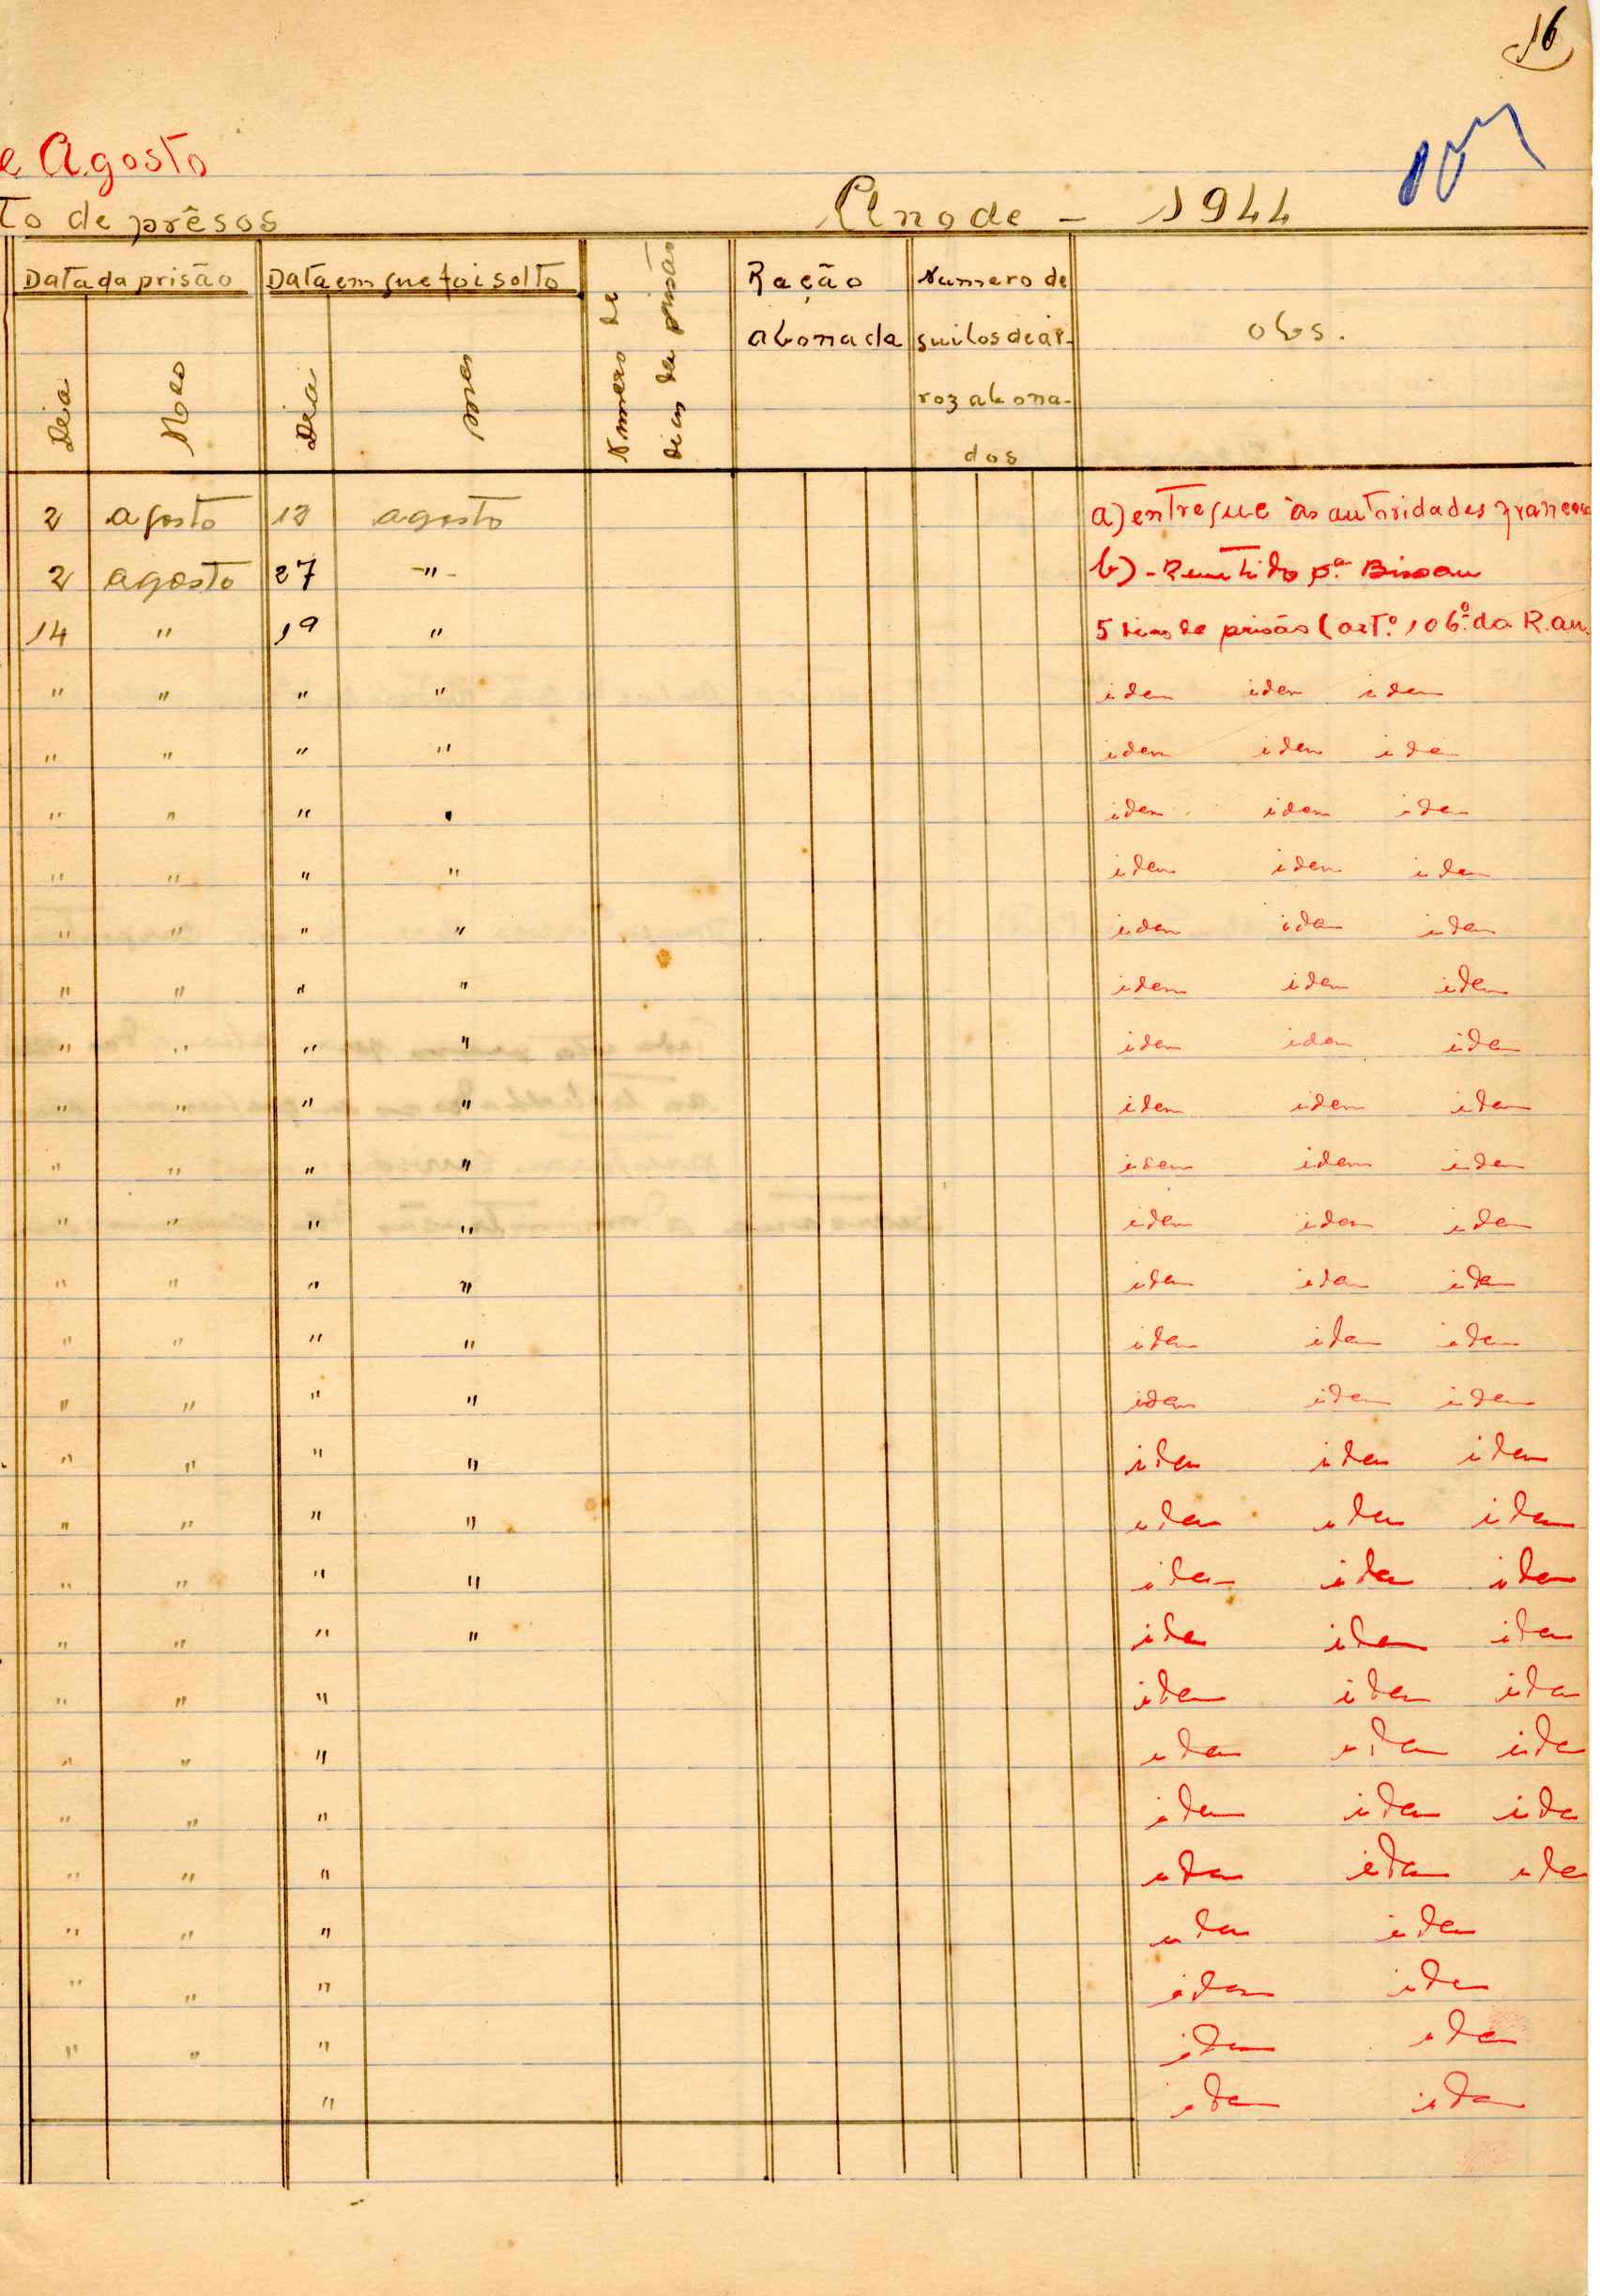 16
e Agosto
to de prêsos Ano de - 1944
Data da prisão Data em que foi solto Numero de dias da prisão Ração abonada Numero de quilos de arroz abonados obs.
Dia Mês Dia Mês
2 agosto 12 agosto a) entregue às autoridades francesas
2 agosto 27 -"- b) - Remetido p.ª Bissau
14 " 19 " 5 dias de prisão (art.º 106.º da R.au.
" " " " idem idem idem
" " " " idem idem idem
" " " " idem idem idem
" " " " idem idem idem
" " " " idem idem idem
" " " " idem idem idem
" " " " idem idem idem
" " " " idem idem idem
" " " " idem idem idem
" " " " idem idem idem
" " " " idem idem idem
" " " " idem idem idem
" " " " idem idem idem
" " " " idem idem idem
" " " " idem idem idem
" " " " idem idem idem
" " " " idem idem idem
" " " idem idem idem
" " " idem idem idem
" " " idem idem idem
" " " idem idem idem
" " " idem idem
" " " idem idem
" " " idem idem
" idem idem